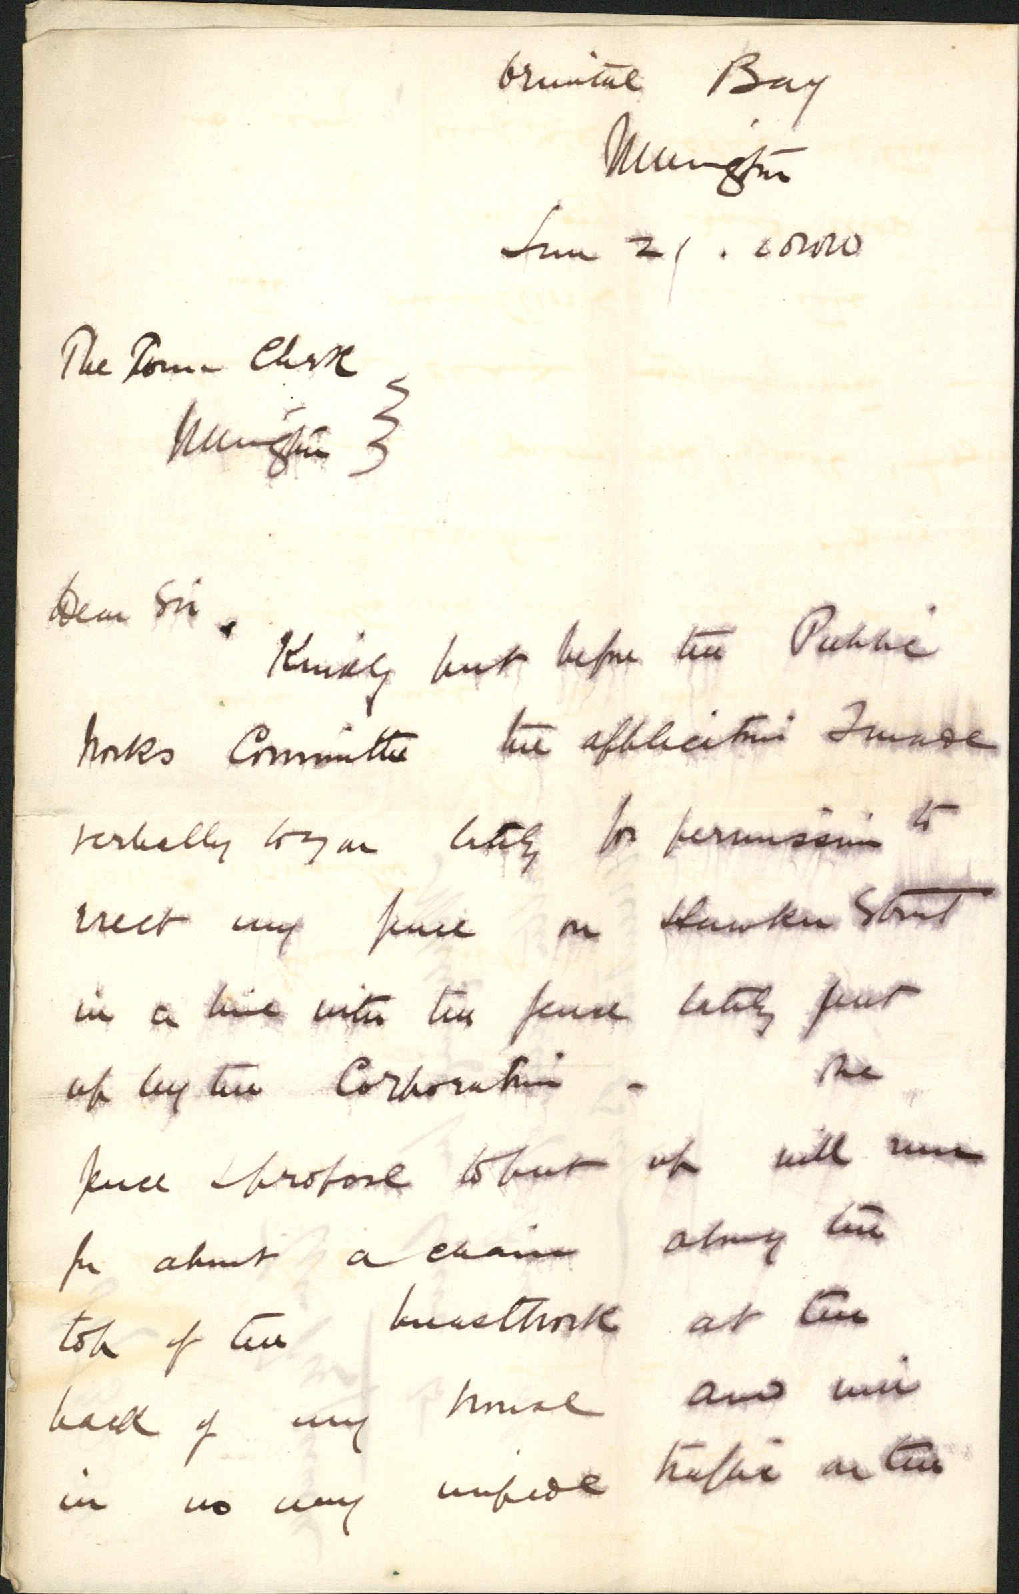 Oriental Bay
Wellington
June 21.
The Town Clerk
Wellington
Dear Sir,
Kindly put before the Public
Works Committee the application I made
verbally to you lately for permission to
erect my fence on Hawker Street
in a line with the fence lately put
up by the Corporation - The
fence I propose to put up will run
for about a chain along the
top of the breastwork at the
back of my house and will
in no way impede traffic on the